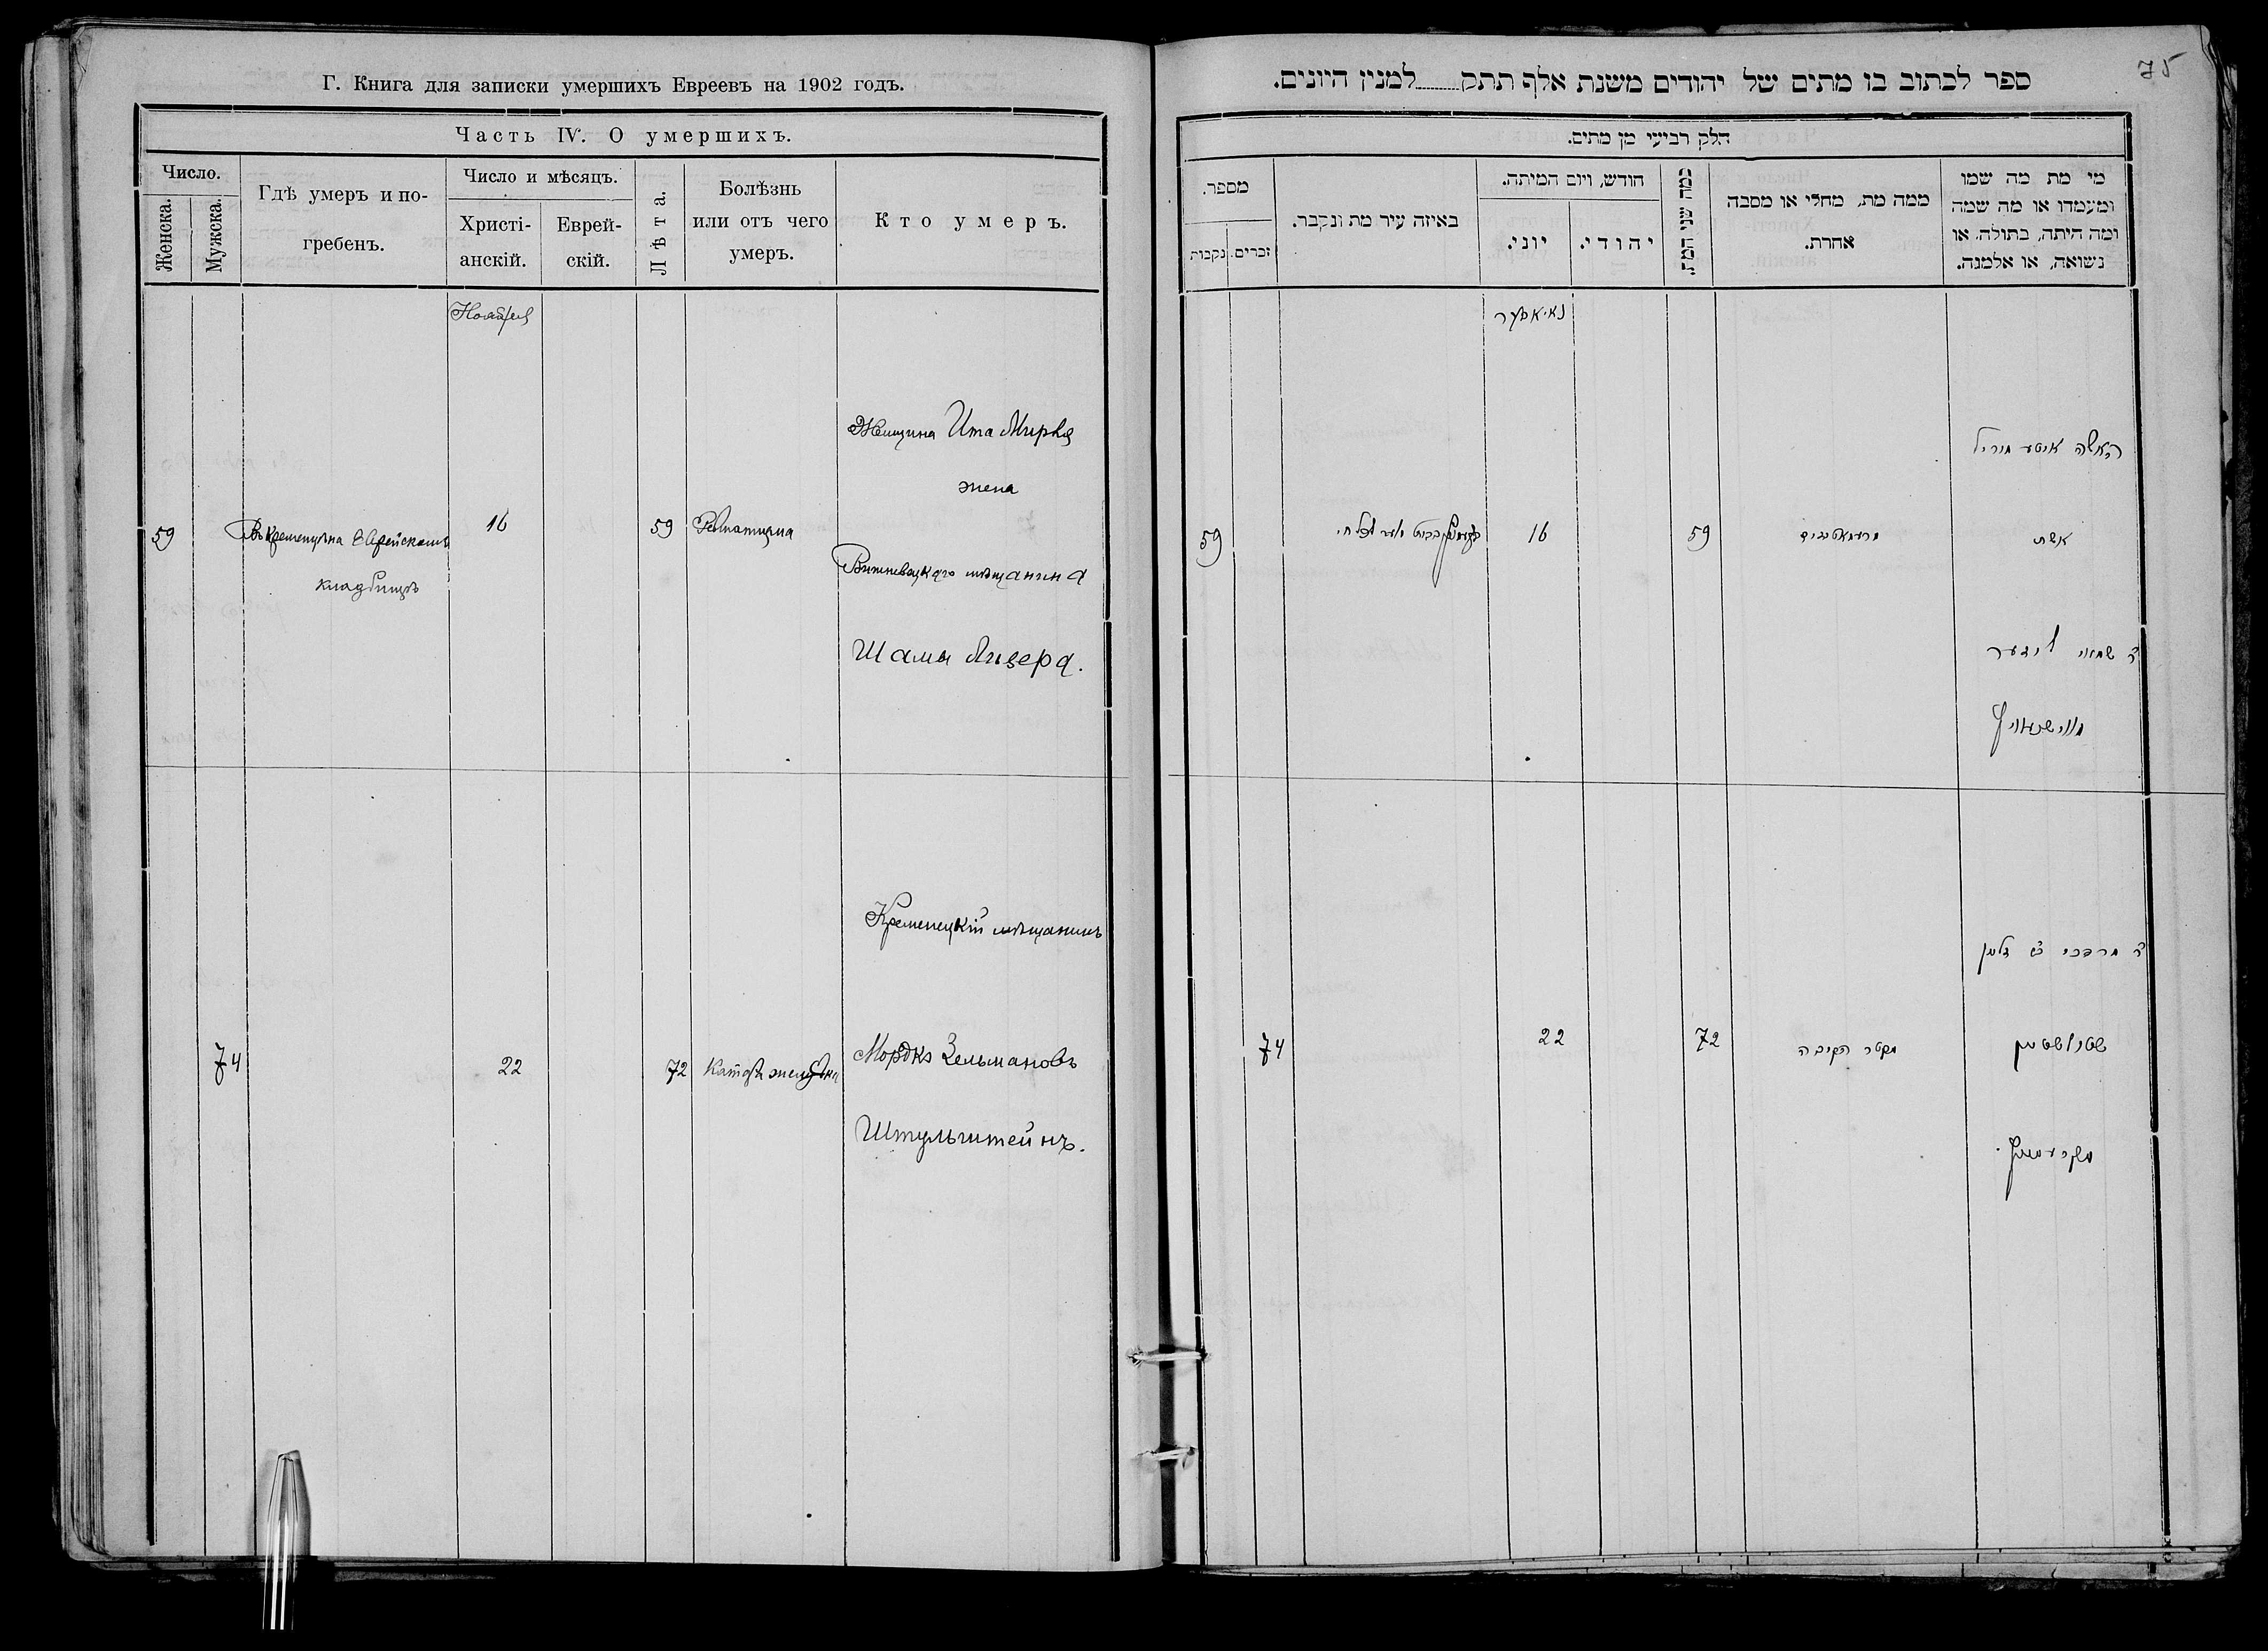 Г. Книга для записки умершихъ Евреевъ на 1902 годъ.
Часть IV. О умершихъ.
Число.
Женска.
Мужска.
Гдѣ умеръ и по-
гребенъ.
Число и мѣсяцъ.
Христі-
анскій.
Еврей-
скій.
Лѣта.
Болѣзнь
или отъ чего
умеръ.
Кто умеръ.
Ноября
59
Въ Кременцѣ на Еврейскомъ
кладбищѣ
16
59
Ревматизма
Женщина Ита Мирля
жена
Вишневецкаго мѣщанина
Шамы Лизера.
74
22
72
Катаръ желудка
Кременецкій мѣщанинъ
Мордко Зельмановъ
Штульштейнъ.
75
ספר לכתוב בו מתים של יהודים משנת אלף תתק למנין היונים.
חלק רביעי מן מתים.
מספר.
נקבות
זכרים.
באיזה עיר מת ונקבר.
חודש, ויום המיתה.
יוני.
יהודי.
כמה שני המת.
ממה מת, מחלי או מסבה
אחרת.
מי מת מה שמו
ומעמדו או מה שמה
ומה היתה, בתולה, או
נשואה, או אלמנה.
נאיאבער
59
16
59
האשה איטע מיריל
אשת
ר׳ שמאי ליזער
74
22
72
ר׳ מרדכי ב׳ זלמן
שטולשטיין